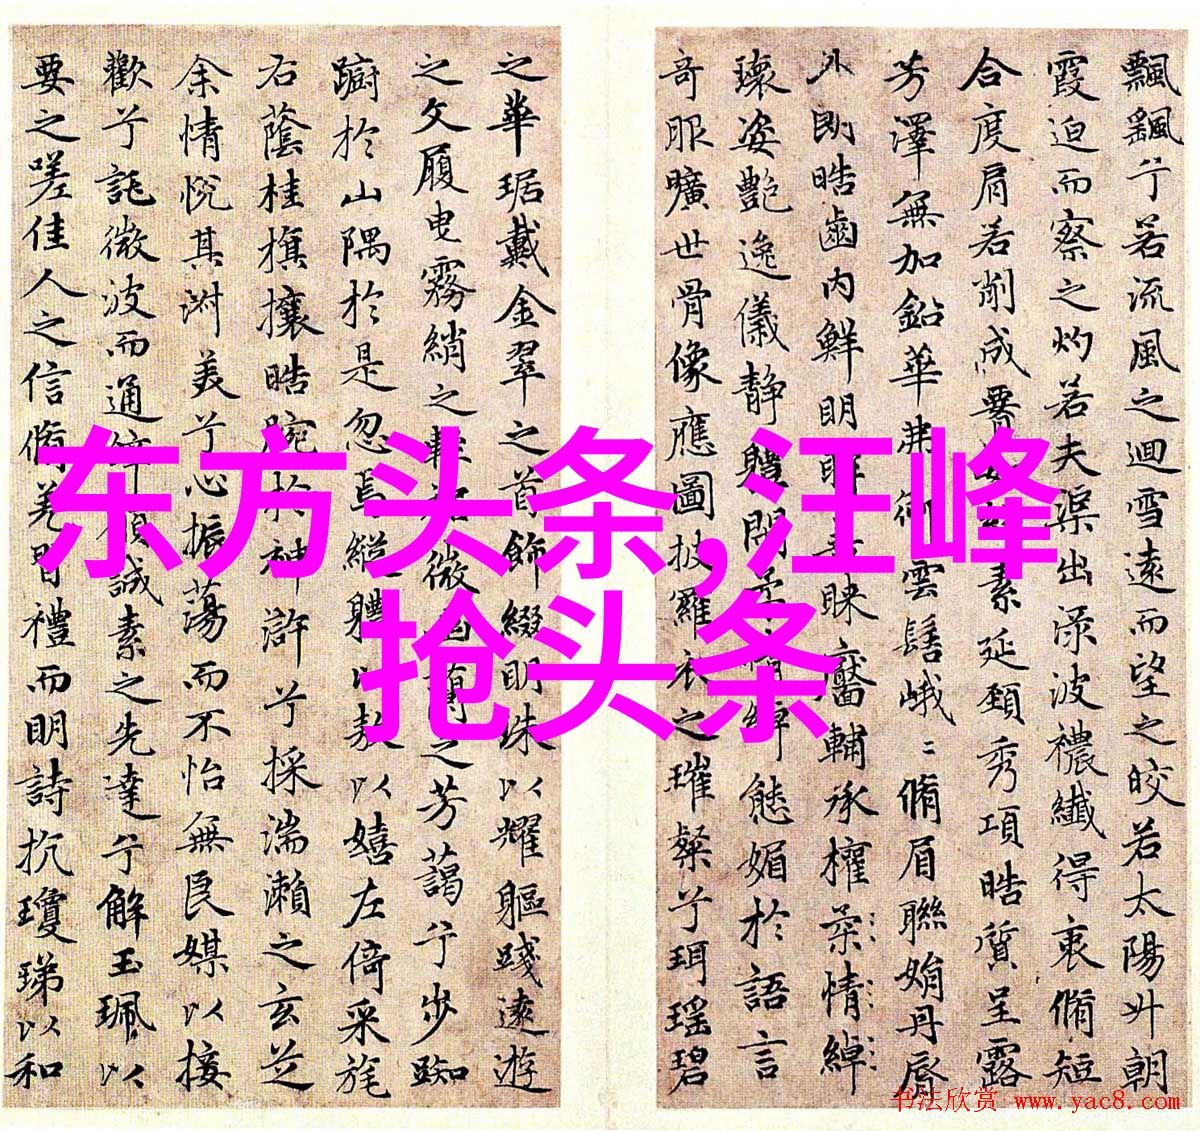 飄颻兮若流風之迴雪遠而望之皎若太陽升朝
霞迫而察之灼若夫渠出淥波襛纖得衷脩短
合度肩若削成素延頸秀項皓質呈露
芳澤無加鉛華弗御雲髻峨〻脩眉聯娟丹脣
外朗皓齒内鮮明眸善睞靨輔承權柔情綽
瓌姿艷逸儀靜體閑柔情綽態媚於語言
奇服曠世骨像應圖披羅衣之璀粲兮珥瑤碧
之華琚戴金翠之首飾綴明珠以耀軀踐遠遊
之文履曳霧綃之輕裾微幽蘭之芳藹兮步踟
躕於山隅於是忽焉縱體以遨以嬉左倚采旄
右蔭桂旗攘皓腕於神滸兮採湍瀨之玄芝
余情悅其淑美兮心振蕩而不怡無良媒以接
歡兮託微波而通辭誠素之先達兮解玉珮以
要之嗟佳人之信脩羌習禮而明詩抗瓊珶以和
东方头条,汪峰
抢头条
书法欣赏 www.yac8.com